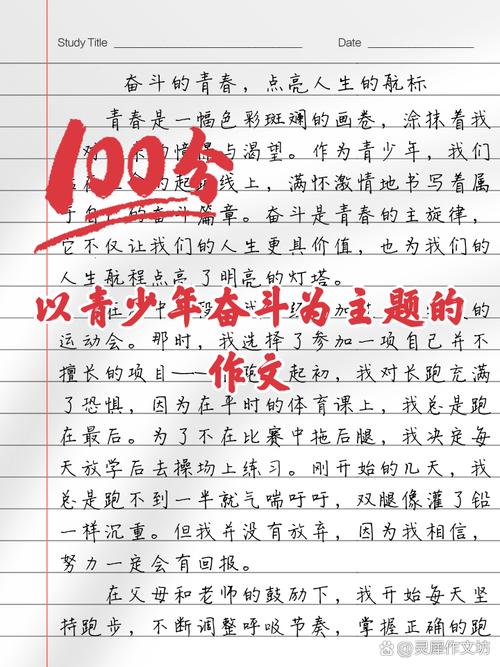 Study Title
Date
奋斗的青春，点亮人生的航标
青春是一幅色彩斑斓的画卷，涂抹着我
憧憬与渴望。作为青少年，我们
起跑线上，满怀激情地书写着属
奋斗篇章。奋斗是青春的主旋律，
它不仅让我们的人生更具价值，也为我们的
人生航程点亮了明亮的灯塔。
100分
以青少年奋斗为主题的
作文
运动会。那时，我选择了参加一项自己并不
擅长的项目——起初，我对长跑充满
了恐惧，因为在平时的体育课上，我总是跑
在最后。为了不在比赛中拖后腿，我决定每
天放学后去操场上练习。刚开始的几天，我
总是跑不到一半就气喘吁吁，双腿像灌了铅
一样沉重。但我并没有放弃，因为我相信，
努力一定会有回报。
在父母和老师的鼓励下，我开始每天坚
持跑步，不断调整呼吸节奏，掌握正确的跑
@灵犀作文坊